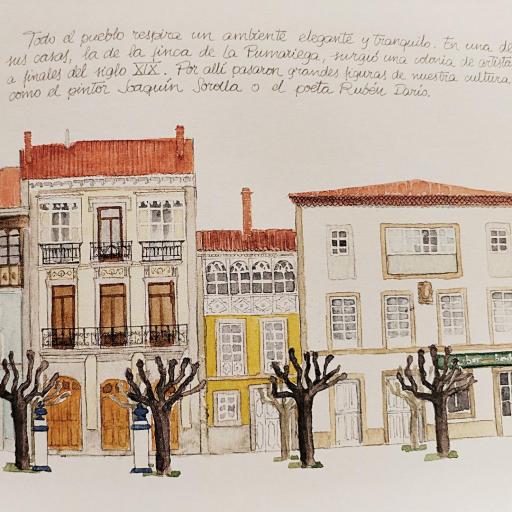 Todo el pueblo respira un ambiente elegante y tranquilo. En una de
sus casas, la de la finca de La Pumariega, surgió una colonia de artistas
a finales del siglo XIX. Por allí pasaron grandes figuras de nuestra cultura,
como el pintor Joaquín Sorolla o el poeta Rubén Darío.